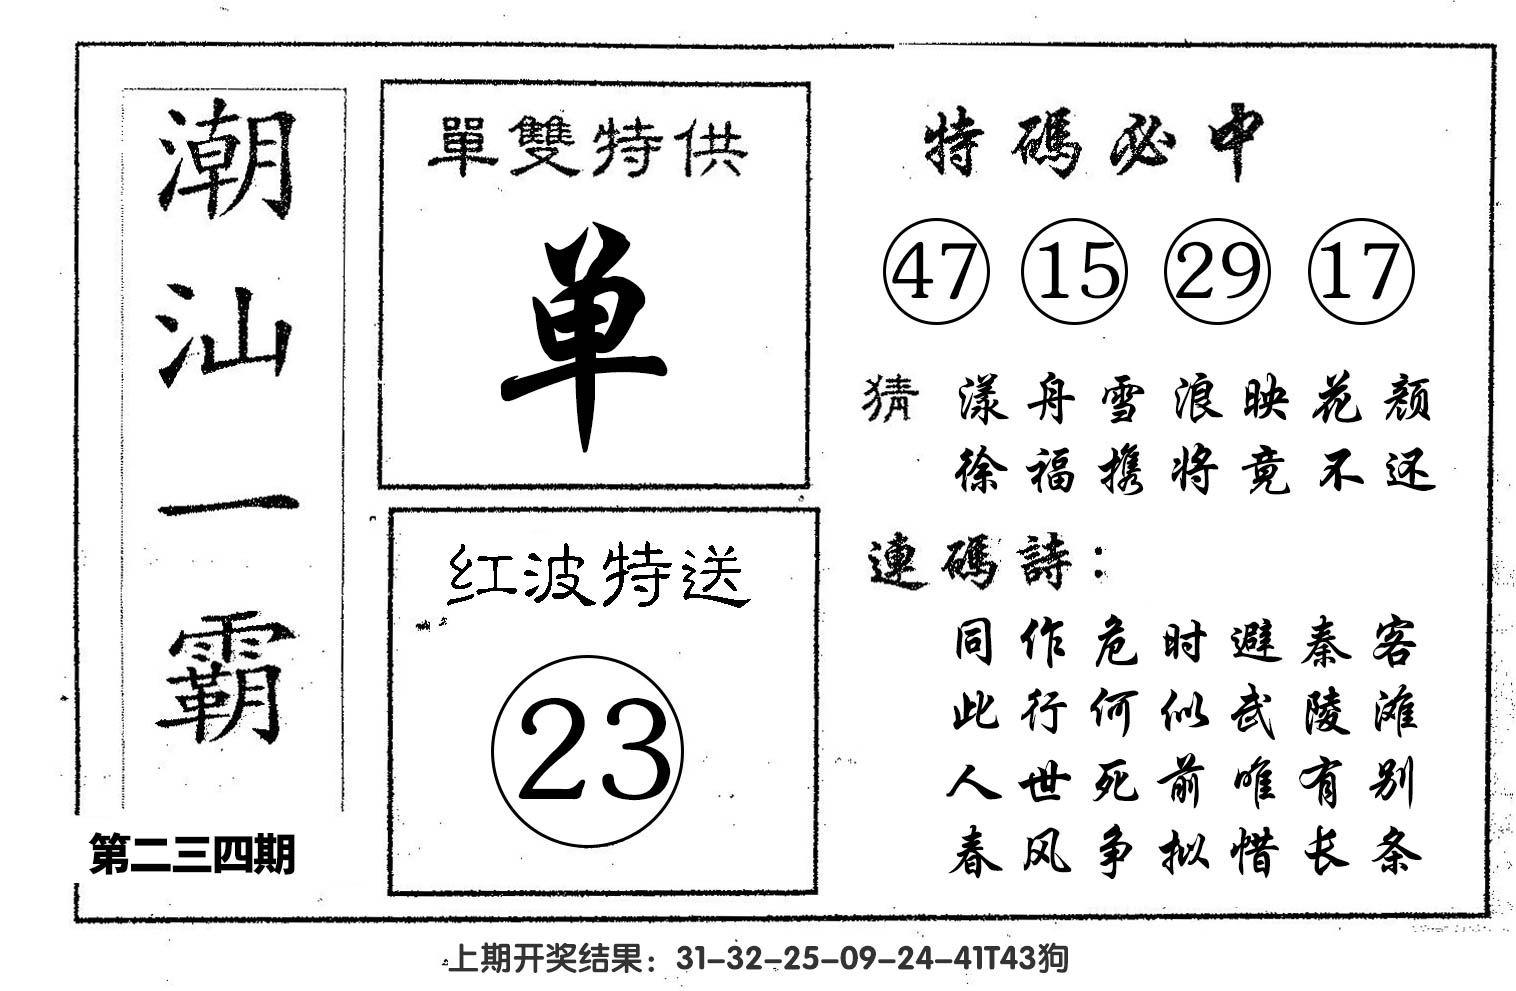 潮汕一霸
第二三四期
單雙特供
单
红波特送
23
特碼必中
47 15 29 17
猜 漾舟雪浪映花颜
徐福携将竟不还
連碼詩：
同作危时避秦客
此行何似武陵滩
人世死前唯有别
春风争拟惜长条
上期开奖结果：31-32-25-09-24-41T43狗